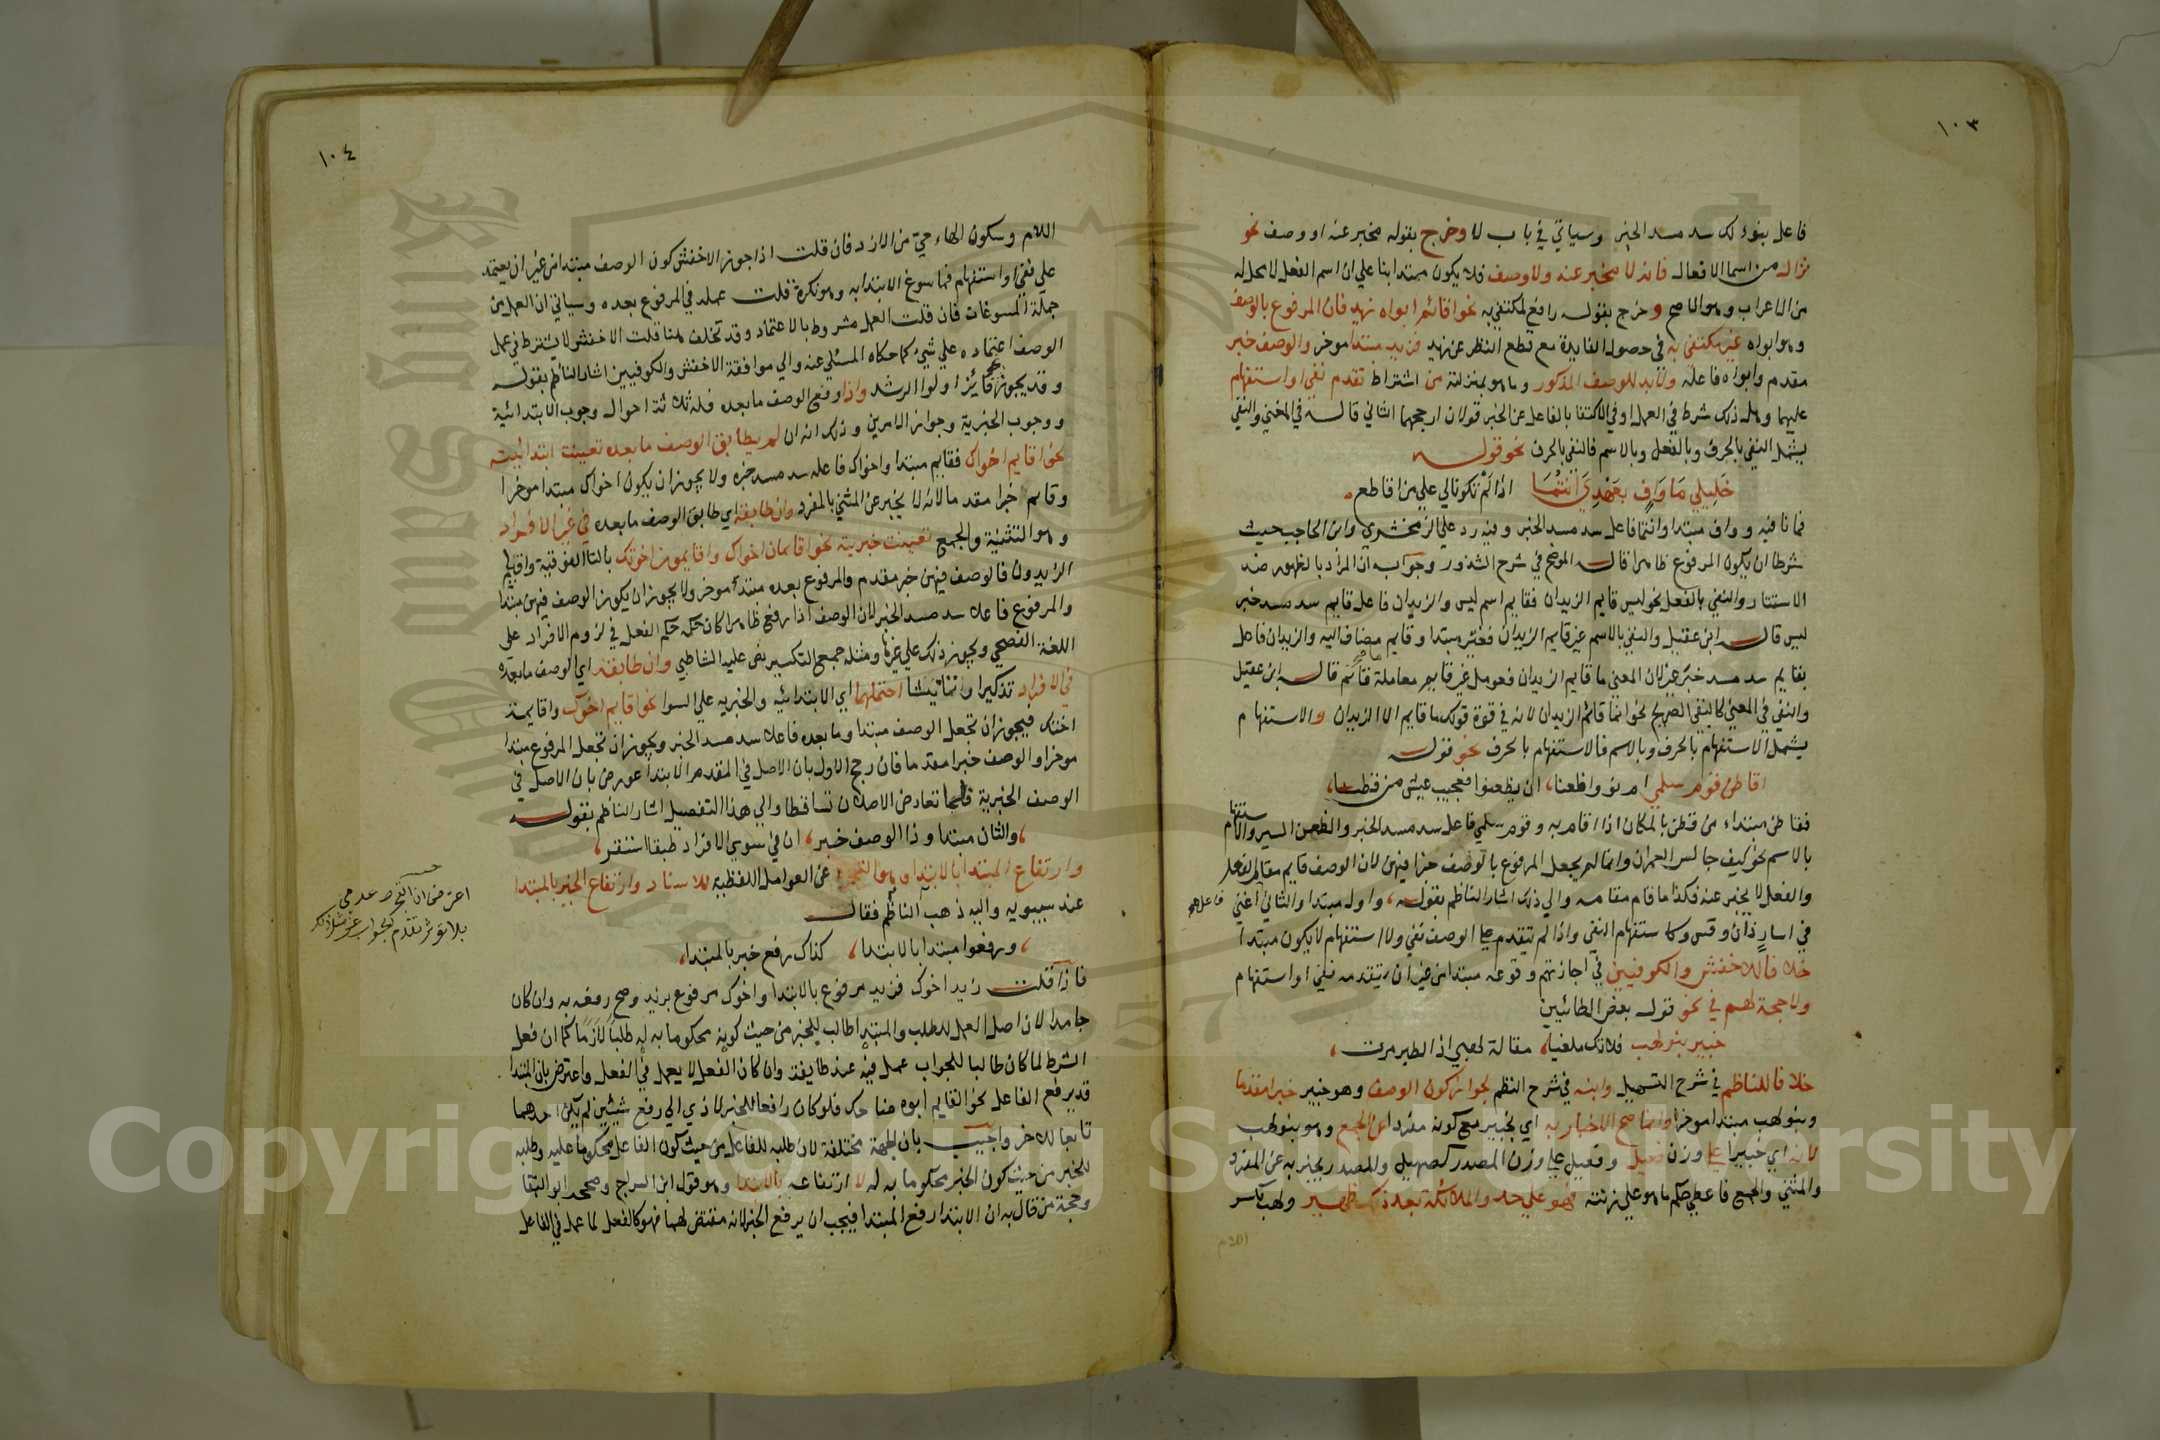 ١٠٣
فاعل بنولك سد مسد الخبر وسياتي في باب لا وخرج بقوله مخبر عنه او وصف نحو
نزال من اسما الافعال فانه لا مخبر عنه ولا وصف فلا يكون مبتدا بنا علي ان اسم الفعل لا محل له
من الاعراب وهو الاصح وخرج بقوله رافع لمكتفي به نحو اقائم ابواه زيد فان المرفوع بالوصف
وهو ابواه غير مكتفي به في حصول الفايدة مع قطع النظر عن زيد فزيد مبتدا موخر والوصف خبر
مقدم وابواه فاعله ولابد للوصف المذكور وما هو بمنزلته من اشتراط تقدم نفي او استفهام
عليهما وهل ذلك شرط في العمل او في الاكتفا بالفاعل عن الخبر قولان ارجحهما الثاني قاله في المغني والنفي
يشمل النفي بالحرف وبالفعل وبالاسم فالنفي بالحرف نحو قوله
خليلي ما واف بعهدي انتما اذا لم تكونا لي علي من اقاطع
فما نافية وواف مبتدا وانتما فاعل سد مسد الخبر وفيه رد علي الزمخشري وابن الحاجب حيث
شرطا ان يكون المرفوع ظاهرا قال الموضح في شرح الشذور وجوابه ان المراد بالظهور ضد
الاستتار والنفي بالفعل نحو ليس قايم الزيدان فقايم اسم ليس والزيدان فاعل قايم سد مسد خبر
ليس قال ابن عقيل والنفي بالاسم غير قايم الزيدان فغير مبتدا وقايم مضاف اليه والزيدان فاعل
بقايم سد مسد خبر غير لان المعني ما قايم الزيدان فعومل غير قايم معاملة ما قائم قاله ابن عقيل
والنفي في المعني كالنفي الصريح نحو انما قائم الزيدان لانه في قوة قولك ما قايم الا الزيدان والاستفهام
يشمل الاستفهام بالحرف وبالاسم فالاستفهام بالحرف نحو قوله
اقاطن قوم سلمي ام نووا ظعنا ان يظعنوا فعجيب عيش من قطنا
فقاطن مبتداء من قطن بالمكان اذا اقام به وقوم سلمي فاعل سد مسد الخبر والظعن السير والاستفهام
بالاسم نحو كيف جالس العمران وانما لم يجعل المرفوع بالوصف خبرا فيهن لان الوصف قايم مقام الفعل
والفعل لا يخبر عنه فكذا ما قام مقامه والي ذلك اشار الناظم بقوله واول مبتدا والثاني اغني
في اسار ذان وقس وكاستفهام النفي واذا لم يتقدم علي الوصف نفي ولا استفهام لا يكون مبتدا
خلافا للاخفش والكوفيين في اجازتهم وقوعه مبتدا من غير ان يتقدمه نفي او استفهام
ولا حجة لهم في نحو قول بعض الطائيين
خبير بنو لهب فلا تك ملغيا مقالة لهبي اذا الطير مرت
خلافا للناظم في شرح التسهيل وابنه في شرح النظم لجواز كون الوصف وهو خبير خبرا مقدما
وبنو لهب مبتدا موخرا وانما صح الاخبار به اي بخبير مع كونه مفردا عن الجمع وهو بنو لهب
لانه اي خبيرا علي وزن فعيل وفعيل علي وزن المصدر كصهيل والمصدر يخبر به عن المفرد
والمثني والجمع فاعطي حكم ما هو علي زنته فهو علي حد والملائكة بعد ذلك ظهير ولهب بكسر
١٠٤
اللام وسكون الهاء حي من الازد فان قلت اذا جوز الاخفش كون الوصف مبتدا من غير ان يعتمد
علي نفي او استفهام فما سوغ الابتدا به وهو نكرة قلت عمله في المرفوع بعده وسياتي ان العمل من
جملة المسوغات فان قلت العمل مشروط بالاعتماد وقد تخلف هنا قلت الاخفش لا يشترط في عمل
الوصف اعتماده علي شيء كما حكاه المسيلي عنه والي موافقة الاخفش والكوفيين اشار الناظم بقوله
وقد يجوز نحو فائز اولوا الرشد واذا رفع الوصف ما بعده فله ثلاثة احوال وجوب الابتدائية
ووجوب الخبرية وجواز الامرين وذلك انه ان لم يطابق الوصف ما بعده تعينت ابتدائيته
نحو اقايم اخواك فقايم مبتدا واخواك فاعله سد مسد خبره ولا يجوز ان يكون اخواك مبتدا موخرا
وقايم خبرا مقدما لانه لا يخبر عن المثني بالمفرد وان طابقه اي طابق الوصف ما بعده في غير الافراد
وهو التثنية والجمع تعينت خبريته نحو اقايمان اخواك واقايمون اخوتك بالتا الفوقية واقايم
الزيدون فالوصف فيهن خبر مقدم والمرفوع بعده مبتدا موخر ولا يجوز ان يكون الوصف فيهن مبتدا
والمرفوع فاعلا سد مسد الخبر لان الوصف اذا رفع ظاهرا كان حكمه حكم الفعل في لزوم الافراد علي
اللغة الفصحي ويجوز ذلك علي غيرها ومثله جمع التكسير نص عليه الشاطبي وان طابقه اي الوصف ما بعده
في الافراد تذكيرا وتانيثا احتملهما اي الابتدائيه والخبريه علي السوا نحو اقايم اخوك واقايمة
اختك فيجوز ان تجعل الوصف مبتدا وما بعده فاعلا سد مسد الخبر ويجوز ان تجعل المرفوع مبتدا
موخرا والوصف خبرا مقدما فان رجح الاول بان الاصل في المقدم الابتدا عورض بان الاصل في
الوصف الخبرية فلما تعارض الاصلان تساقطا والي هذا التفصيل اشار الناظم بقوله
والثان مبتدا وذا الوصف خبر ان في سوي الافراد طبقا استقر
وارتفاع المبتدا بالابتدا وهو التجرد عن العوامل اللفظية للاسناد وارتفاع الخبر بالمبتدا
عند سيبويه واليه ذهب الناظم فقال
ورفعوا مبتدا بالابتدا كذاك رفع خبر بالمبتدا
فاذا قلت زيد اخوك فزيد مرفوع بالابتدا واخوك مرفوع بزيد وصح رفعه به وان كان
جامدا لان اصل العمل للطلب والمبتدا طالب للخبر من حيث كونه محكوما به له طلبا لازما كما ان فعل
الشرط لما كان طالبا للجواب عمل فيه عند طايفة وان كان الفعل لا يعمل في الفعل واعترض بان المبتدا
قد يرفع الفاعل نحو القايم ابوه ضاحك فلو كان رافعا للخبر لادي الي رفع شيئين لم يكن احدهما
تابعا للاخر واجيب بان الجهة مختلفة لان طلبه للفاعل من حيث كون الفاعل محكوما عليه وطلبه
للخبر من حيث كون الخبر محكوما به له لا ارتفاعه بالابتدا وهو قول ابن السراج وصححه ابو البقا
وحجة من قال به ان الابتدا رفع المبتدا فيجب ان يرفع الخبر لانه مقتض لهما فهو كالفعل لما عمل في الفاعل
اعترض ان التجرد عدمي